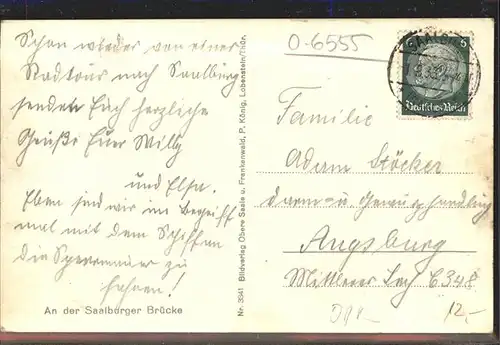 Schon wieder von einer
Radtour nach Saalburg
senden Euch herzliche
Grüße Euer Willy
und Elsa.
Eben sind wir im Begriff
mal mit dem Schiffen
die Sperrmauer zu
fahren!
An der Saalburger Brücke
Nr. 3941 Bildverlag Obere Saale u. Frankenwald, P. König, Lobenstein/Thür.
0-6555
5
Deutsches Reich
Familie
Adam Stöcker
Darm- u. Gewürzhandlung
Augsburg
Mittlerer Lech C 348
12,-